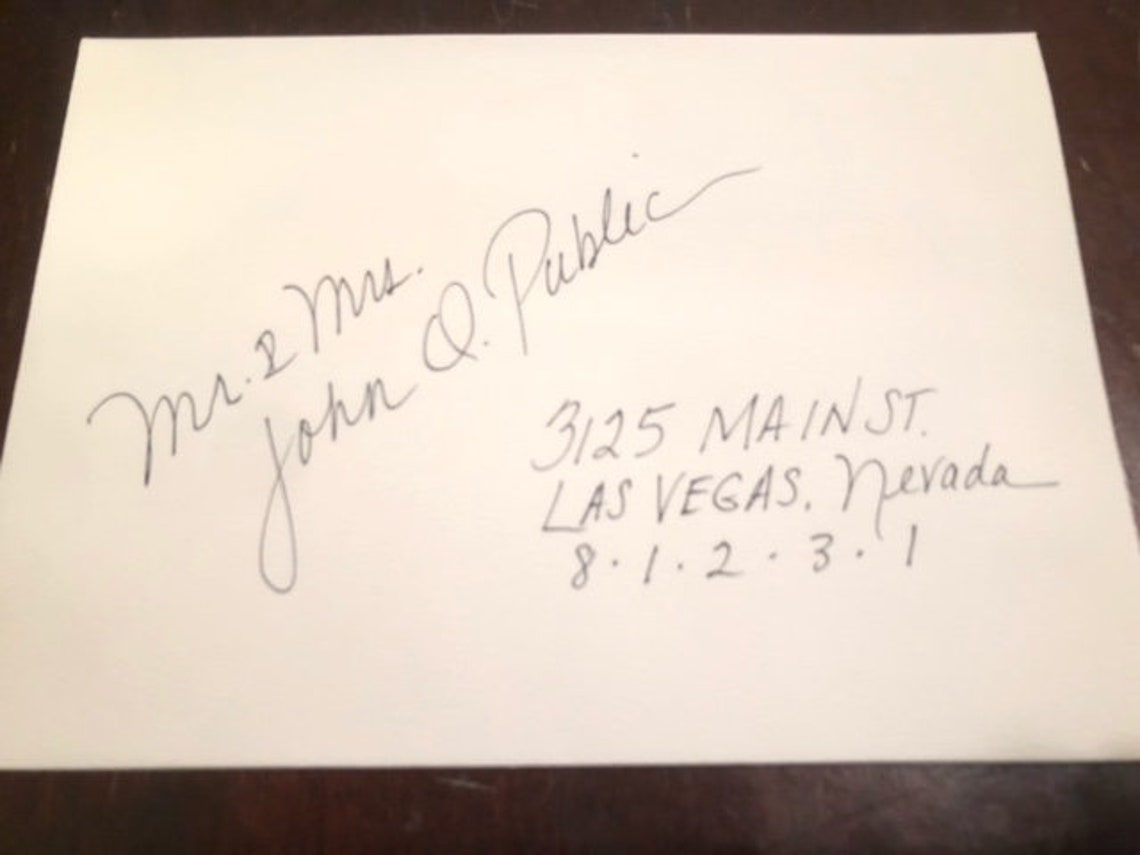 Mr. & Mrs.
John Q. Public
3125 MAIN ST.
LAS VEGAS, Nevada
8·1·2·3·1